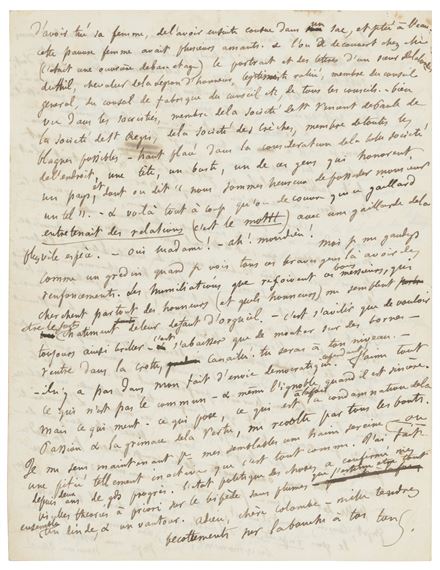 d'avoir tué sa femme, de l'avoir ensuite cousue dans un sac, et jetée à l'eau.
cette pauvre femme avait plusieurs amants. & l'on a découvert chez elle
(c'était une ouvrière de bas étage) le portrait et des lettres d'un sieur
chevalier de la légion d'honneur, légitimiste rallié, membre du conseil
général, du conseil de fabrique du conseil etc de tous les conseils. - bien
vu dans les sacristies, membre de la société de St Vincent de Paule de
la société de St Régis, de la société des crèches, membre de toutes les
blagues possibles - haut placé dans la considération de la belle société
de l'endroit, une tête, un buste, un de ces gens qui honorent
un pays, et dont on dit « nous sommes heureux de posséder monsieur
un tel ». - & voilà tout à coup qu'on découvre que ce gaillard
entretenait des relations (c'est le mot!!!) avec une gaillarde de la
plus vile espèce. - oui madame! - ah! mon dieu!
moi je me gaudys
comme un gredin quand je vois tous ces braves gens là avoir des
renfoncements. les humiliations que reçoivent ces bons messieurs, qui
cherchent partout des honneurs (et quels honneurs) me semblent
être le juste châtiment de leur défaut d'orgueil. - c'est s'avilir que de vouloir
toujours ainsi briller - c'est s'abaisser que de monter sur des bornes -
rentre dans la crotte, canaille! tu seras à ton niveau. -
- il n'y a pas dans mon fait d'envie démocratique. cependant j'aime tout
ce qui n'est pas le commun - & même l'ignoble, quand il est sincère.
mais ce qui ment. ce qui pose, ce qui est à la fois la condamnation de la
Passion & la grimace de la Vertu, me révolte par tous les bouts.
Je me sens maintenant pr mes semblables une haine sereine, ou
une pitié tellement inactive que c'est tout comme. J'ai fait
depuis deux ans de gds progrès. l'état politique des choses a confirmé mes
vieilles théories à priori sur le bipède sans plumes que j'estime être tout
ensemble un dinde & un vautour. adieu, chère colombe - mille tendres
bécottements sur la bouche à toi ton